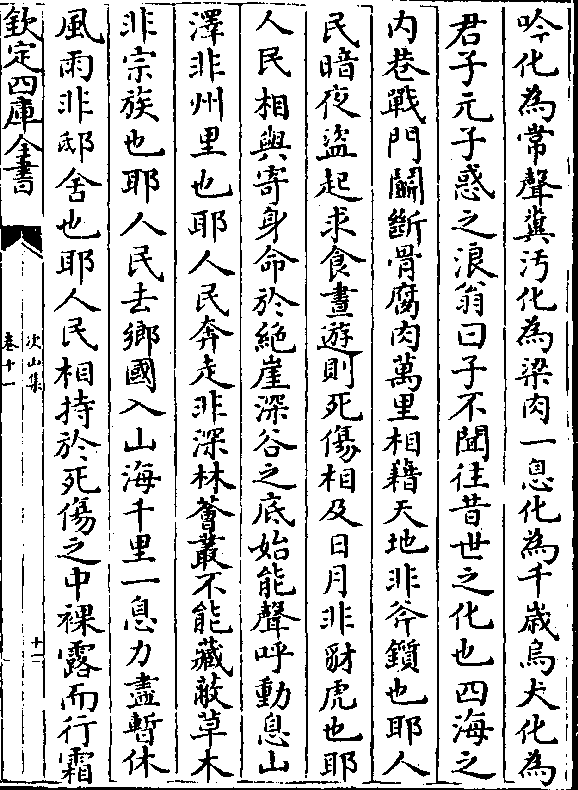 吟化為常聲糞汚化為粱肉一息化為千歲烏犬化為
君子元子惑之浪翁曰子不聞往昔世之化也四海之
内巷戰門鬬斷骨腐肉萬里相藉天地非斧鑕也耶人
民暗夜盜起求食晝遊則死傷相及日月非豺虎也耶
人民相與寄身命於絶崖深谷之底始能聲呼動息山
澤非州里也耶人民奔走非深林薈叢不能藏蔽草木
非宗族也耶人民去鄉國入山海千里一息力盡暫休
風雨非邸舍也耶人民相持於死傷之中裸露而行霜
欽定四庫全書
次山集
卷十一
十二